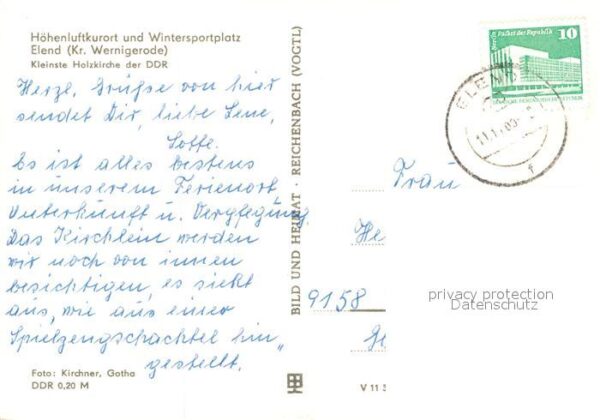 Höhenluftkurort und Wintersportplatz
Elend (Kr. Wernigerode)
Kleinste Holzkirche der DDR
Herzl. Grüße von hier
sendet Dir, liebe Lene,
Lotte.
Es ist alles bestens
in unserem Ferienort
Unterkunft u. Verpflegung
Das Kirchlein werden
wir noch von innen
besichtigen, es sieht
aus, wie aus einer
Spielzeugschachtel hin„
gestellt.
Foto: Kirchner, Gotha
DDR 0,20 M
BILD UND HEIMAT · REICHENBACH (VOGTL)
V 11
Berlin, Palast der Republik
10
ELEND
Frau
He
9158
Ge
privacy protection
Datenschutz